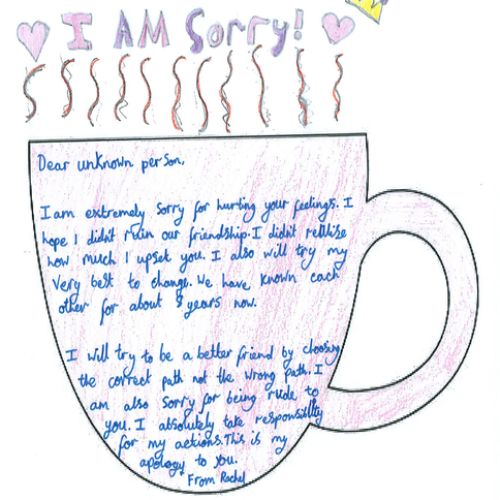 I AM Sorry!
Dear unknown person,
I am extremely sorry for hurting your feelings. I
hope I didn't ruin our friendship. I didn't relilise
how much I upset you. I also will try my
very best to change. We have known each
other for about 8 years now.
I will try to be a better friend by choosing
the correct path not the wrong path. I
am also sorry for being rude to
you. I absolutely take responsibility
for my actions. This is my
apology to you.
From Rachel